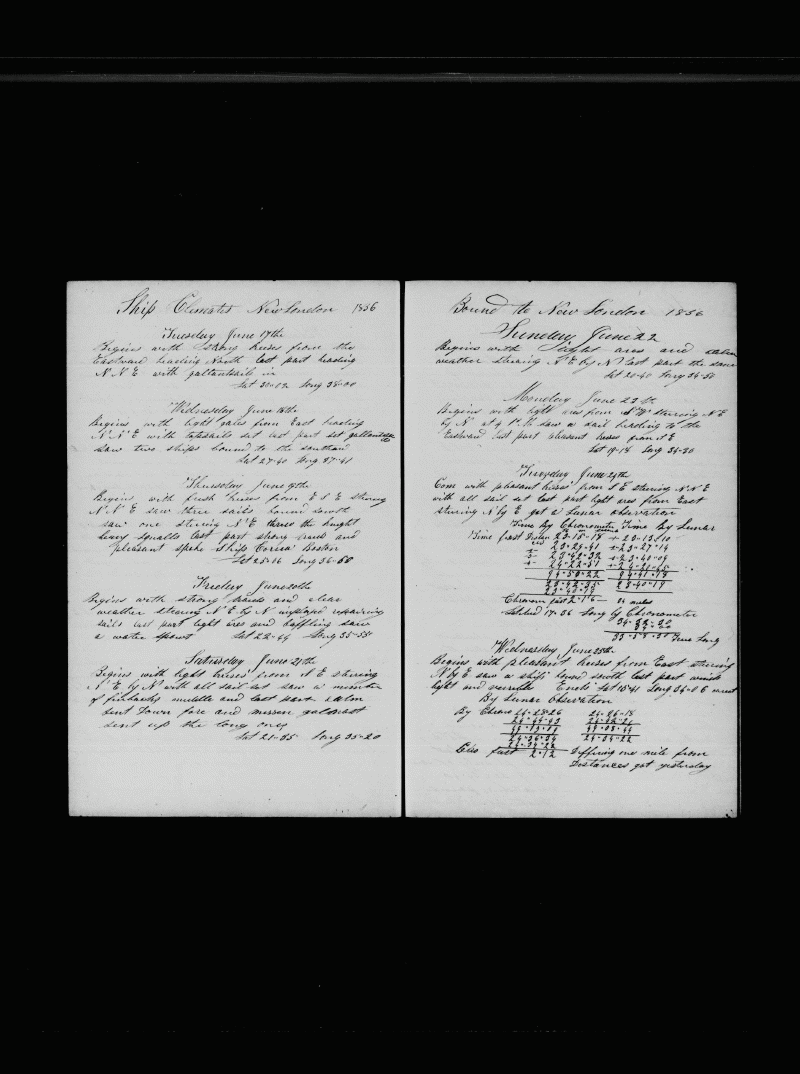 Ship Clematis New London 1856
Tuesday June 17th
Begins with strong brises from the
Eastward heading North last part heading
N N E with gallantsails in
Lat 30-02 Long 38-00
Wednesday June 18th
Begins with light gales from East heading
N N E with topsails set last part set gallantsails
saw two ships bound to the southard
Lat 27-40 Long 37-41
Thursday June 19th
Begins with fresh brises from E S E steering
N N E saw three sails bound south
saw one stering N E the night
heavy squalls last part strong and
pleasant spoke Ship Boston
Lat 25-06 Long 36-50
Friday June 20th
Begins with strong and clear
weather stearing N E by N imployed repairing
sails last part light ares and baffling saw
a water spout Lat 22-44 Long 35-55
Saturday June 21th
Begins with light brises from N E stearing
N E by N with all sail set saw a number
of finbacks middle and last part calm
sent down fore and mizzen galmast
sent up the long ones
Lat 21-35 Long 35-20
Bound to New London 1856
Sunday June 22
Begins with light ares and
weather stering N E by N last part the same
Lat 20-40 Long 34-50
Monday June 23th
Begins with light ares from N W stearing N E
by N at 4 P.M. saw a sail heading to the
Eastward last part pleasant brises from S E
Lat 19-14 Long 34-20
Tuesday June 24th
Com with pleasant brises from S E stearing N N E
with all sail set last part light ares from East
stering N by E got a Lunar observation
Time By Chronometer Time By Lunar
Time first Distan 23-15-18 + 23-13-10
23-29-41 + 23-27-14
23-42-32 + 23-40-09
24-22-51
94-50-22 94-41-18
23-42-35 23-40-19
23-40-19
Chronom fast 2-16 miles
Latded 17-36 Long by Chronometer
33-58-30 True Long
Wednesday June 25th
Begins with pleasant brises from East steering
N by E saw a ship bound south last part winds
light and Ends Lat 15-41 Long 34-06 west
By Lunar Observation
By Chrono 24-28-26 24-26-18
24-44-43
49-13-09 49-08-44
24-36-34 24-34-22
24-34-22
fast 2-12 Differing one mile from
Distances got yesterday